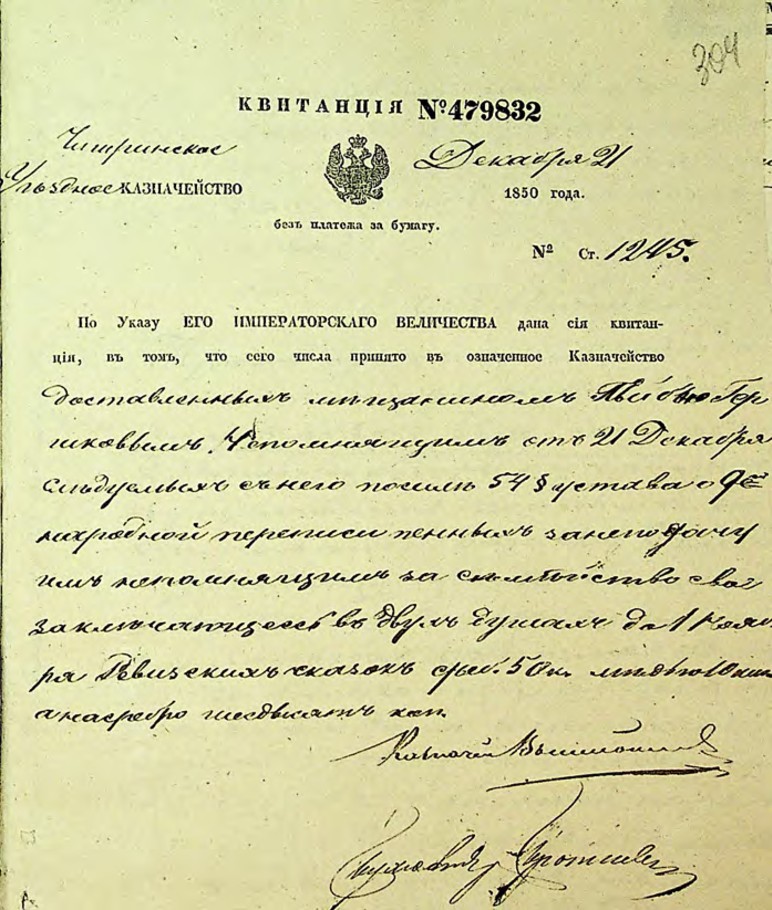 304
КВИТАНЦІЯ №479832
Читринское
Уѣздное КАЗНАЧЕЙСТВО
Декабря 21
1850 года.
безъ платежа за бумагу.
№ Ст. 1245.
По Указу ЕГО ИМПЕРАТОРСКАГО ВЕЛИЧЕСТВА дана сія квитан-
ція, въ томъ, что сего числа принято въ означенное Казначейство
доставленныхъ мѣщаниномъ Лейбою Гер
шковымъ Непомнящимъ отъ 21 Декабря
слѣдуемыхъ съ него посилѣ 54 § устава о 9ой
народной переписи пенныхъ за неподачу
имъ непомнящимъ за семѣйство свое
заключающееся въ двухъ душахъ до 1 Нояб
ря Ревизскихъ сказокъ среб. 50 к. мѣдью 10 коп.
а на серебро шесдесятъ коп.
Казначей